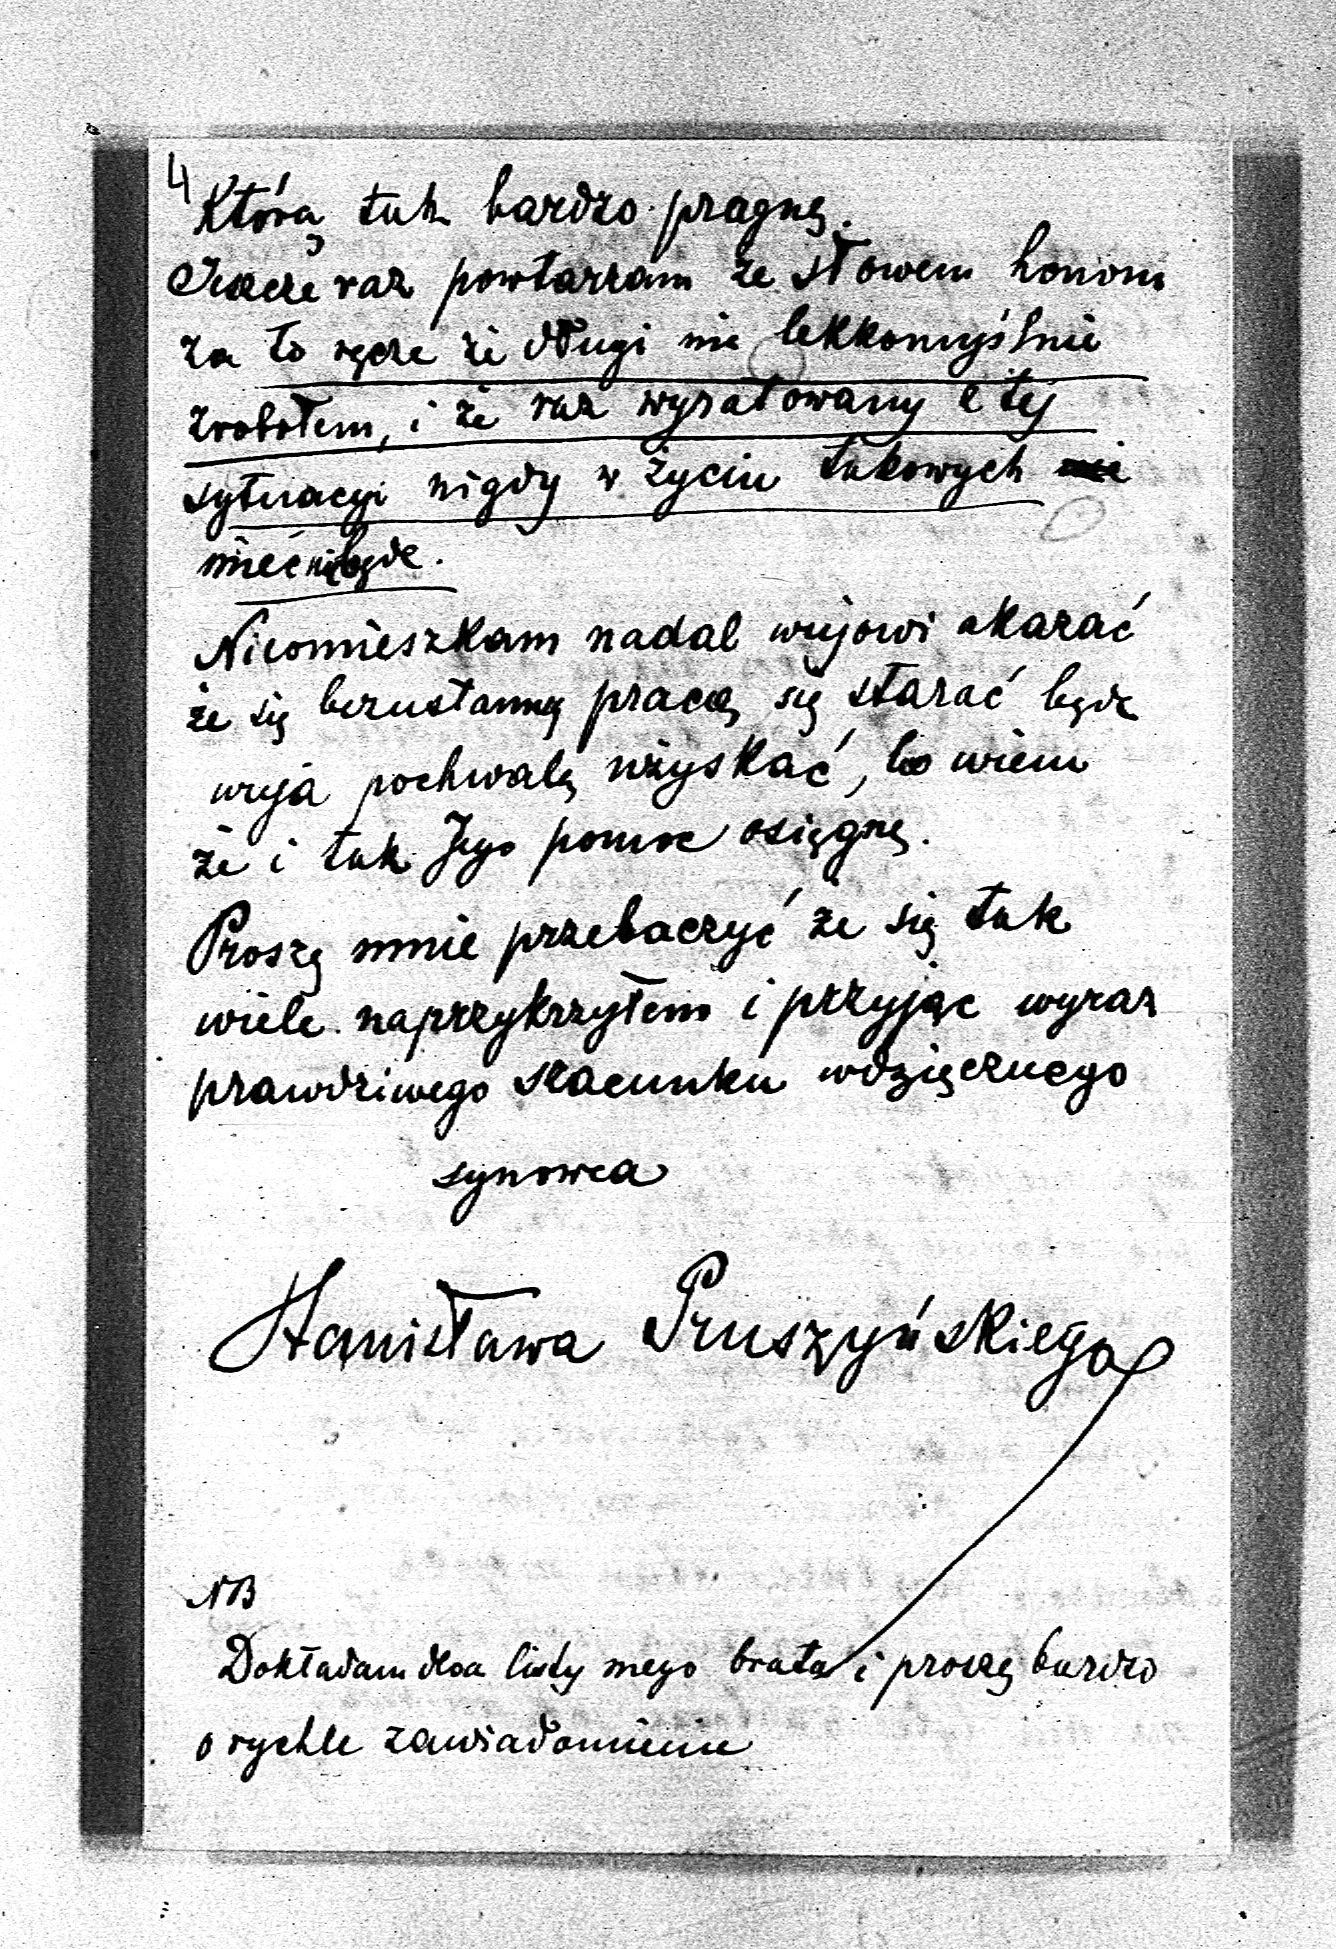 4
Którą tak bardzo pragnę.
Jeszcze raz powtarzam że słowem honoru
za to ręcze że długi nie lekkomyślnie
zrobołem, i że raz wyratowany z tej
sytuacyi nigdy w życiu takowych nie
mieć nie będe.
Nieomieszkam nadal wujowi okazać
że się bezustanną pracą się starać będe
wuja pochwałę uzyskać, bo wiem
że i tak Jego pomoc osięgnę.
Proszę mnie przebaczyć że się tak
wiele naprzykrzyłem i przyjąc wyraz
prawdziwego szacunku wdzięcznego
synowca
Stanisława Pruszyńskiego
NB
Dokładam dwa listy mego brata i proszę bardzo
o rychle zawiadomienie